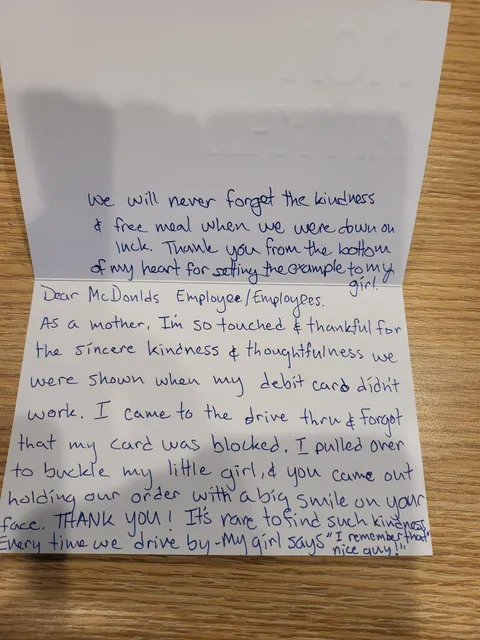 We will never forget the kindness
& free meal when we were down on
luck. Thank you from the bottom
of my heart for setting the example to my
girl.
Dear McDonlds Employee/Employees.
As a mother, I'm so touched & thankful for
the sincere kindness & thoughtfulness we
were shown when my debit card didn't
work. I came to the drive thru & forgot
that my card was blocked. I pulled over
to buckle my little girl, & you came out
holding our order with a big smile on your
face. THANK YOU! It's rare to find such kindness.
Every time we drive by - My girl says "I remember that
nice guy!"